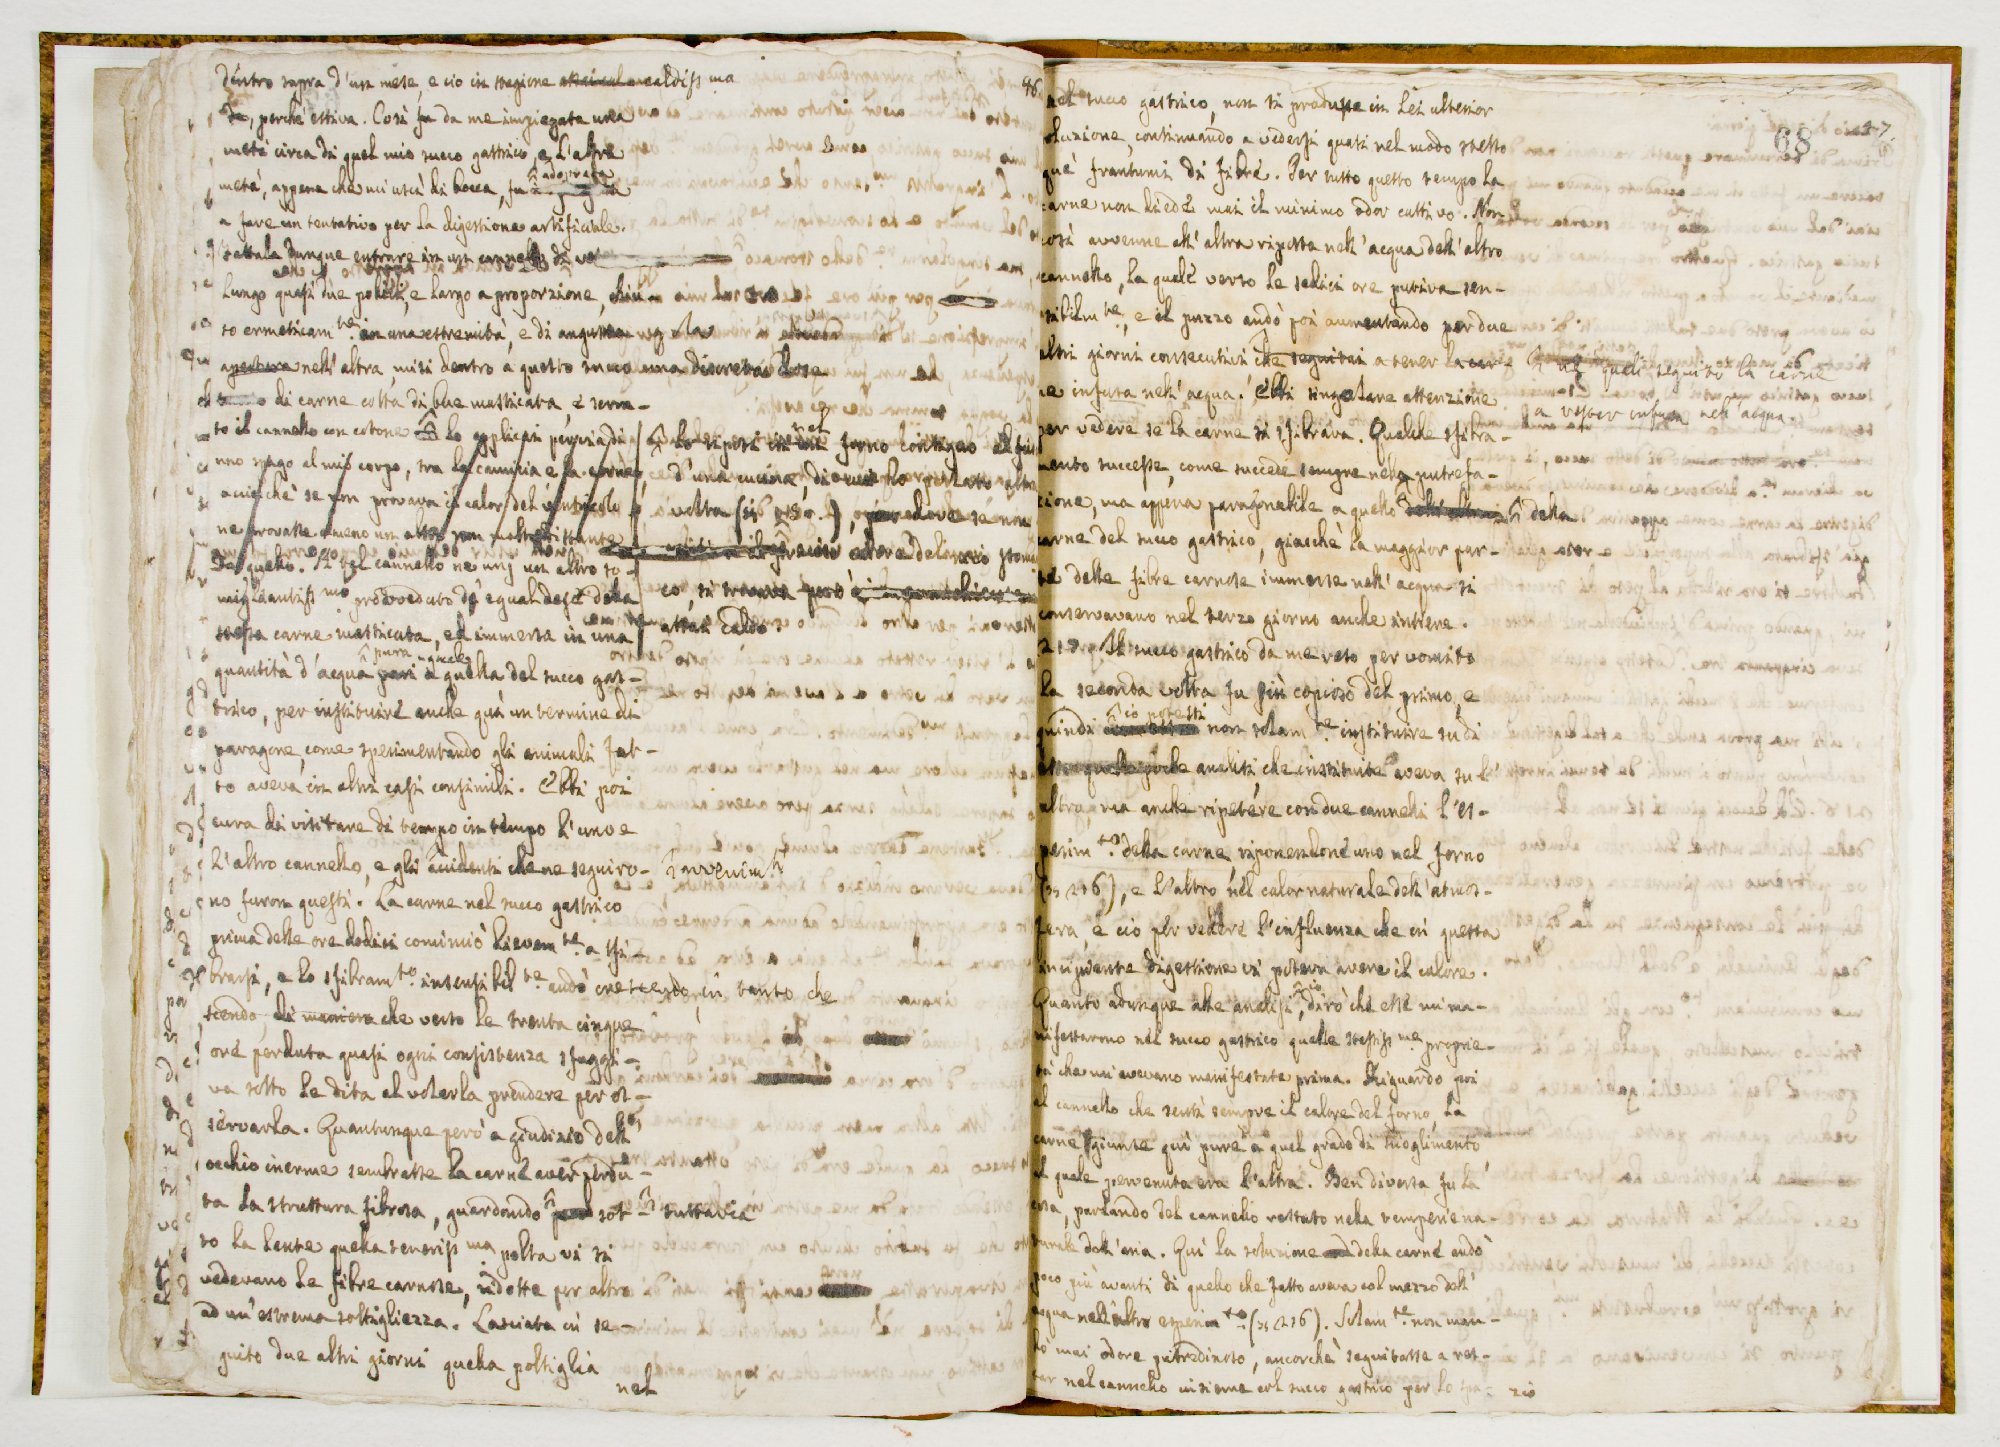 dentro sopra d'un mese, e cio in stagione caldiss.ma
perchè estiva. Così fu da me impiegata una
metà circa di quel mio succo gastrico, e l'altra
metà, appena che mi uscì di bocca, fu adoperata
a fare un tentativo per la digestione artificiale.
Fattala dunque entrare in un cannello di
lungo quasi due pollici, e largo a proporzione, chiu-
so ermeticam.te in una estremità, e di angusta
apertura nell'altra, misi dentro a questo succo una discreta dose
di carne cotta di bue masticata, e serra-
to il cannello con cotone lo applicai per via di
uno spago al mio corpo, tra la camicia e la carne,
acciochè se non provava il calor del ventricolo
ne provasse almeno un altro non molto distante
da quello. A tal cannello ne unj un altro so-
migliantiss.mo provveduto d'egual dose della
stessa carne masticata, ed immersa in una
quantità d'acqua pura uguale a quella del succo gas-
trico, per instituire anche quì un termine di
paragone, come sperimentando gli animali fat-
to aveva in altri casi consimili. Ebbi poi
cura di visitare di tempo in tempo l'uno e
l'altro cannello, e gli accidenti che ne seguiro-
avvenim.ti
no furon questi. La carne nel succo gastrico
prima delle ore dodici cominciò lievem.te a sfi-
brarsi, e lo sfibram.to insensibil.te andò crescendo, in tanto che
scendo, di maniera che verso le trenta cinque
ore perduta quasi ogni consistenza sfuggi-
va sotto le dita al volerla prendere per os-
servarla. Quantunque però a giudizio dell'
occhio inerme sembrasse la carne aver perdu-
ta la struttura fibrosa, guardando sot- tuttavia
to la lente quella teneriss.ma polta vi si
vedevano le fibre carnose, ridotte per altro
ad un'estrema sottigliezza. Lasciata in se-
guito due altri giorni quella poltiglia
nel
lo riposi nel forno contiguo al
d'una cucina, di cui ho parlato altra
volta (§ ), dove se non
il preciso calore del mio stoma
co, si trovava però
assai caldo.
68
nel succo gastrico, non si produsse in lei ulterior
soluzione, continuando a vedersi quasi nel modo stesso
que' frantumi di fibre. Per tutto questo tempo la
carne non diede mai il minimo odor cattivo. Non
così avvenne all'altra riposta nell'acqua dell'altro
cannello, la quale verso le sedici ore putiva sen-
sibilm.te, e il puzzo andò poi aumentando per due
altri giorni consecutivi che seguitai a tener la car-
ne' quali seguitò la carne
ne infusa nell'acqua. Ebbi singolare attenzione
a restar infusa nell'acqua.
per vedere se la carne si sfibrava. Qualche sfibra-
mento successe, come succede sempre nella putrefa-
zione, ma appena paragonabile a quello della
carne del succo gastrico, giacchè la maggior par-
te delle fibre carnose immerse nell'acqua si
conservavano nel terzo giorno anche intere.
217 Il succo gastrico da me reso per vomito
la seconda volta fu più copioso del primo, e
quindi io potetti non solam.te instituire su di
esso quelle poche analisi che instituite aveva su l'
altro, ma anche ripetere con due cannelli l'es-
perim.to della carne, riponendone uno nel forno
(§ 216), e l'altro nel calor naturale dell'atmos-
fera, e ciò per vedere l'influenza che in questa
incipiente digestione vi poteva avere il calore.
Quanto adunque alle analisi, dirò che esse mi ma-
nifestarono nel succo gastrico quelle stessiss.me proprie-
tà che mi avevano manifestate prima. Riguardo poi
al cannello che sentì sempre il calore del forno, la
carne giunse quì pure a quel grado di scioglimento
al quale pervenuta era l'altra. Ben diversa fu la
cosa, parlando del cannello restato nella temperie na-
turale dell'aria. Qui la soluzione della carne andò
poco più avanti di quello che fatto aveva col mezzo dell'
acqua nell'altro esperim.to (§ 216). Solam.te non man-
dò mai odore putredinoso, ancorchè seguitasse a res-
tar nel cannello insieme col succo gastrico per lo spa-
zio